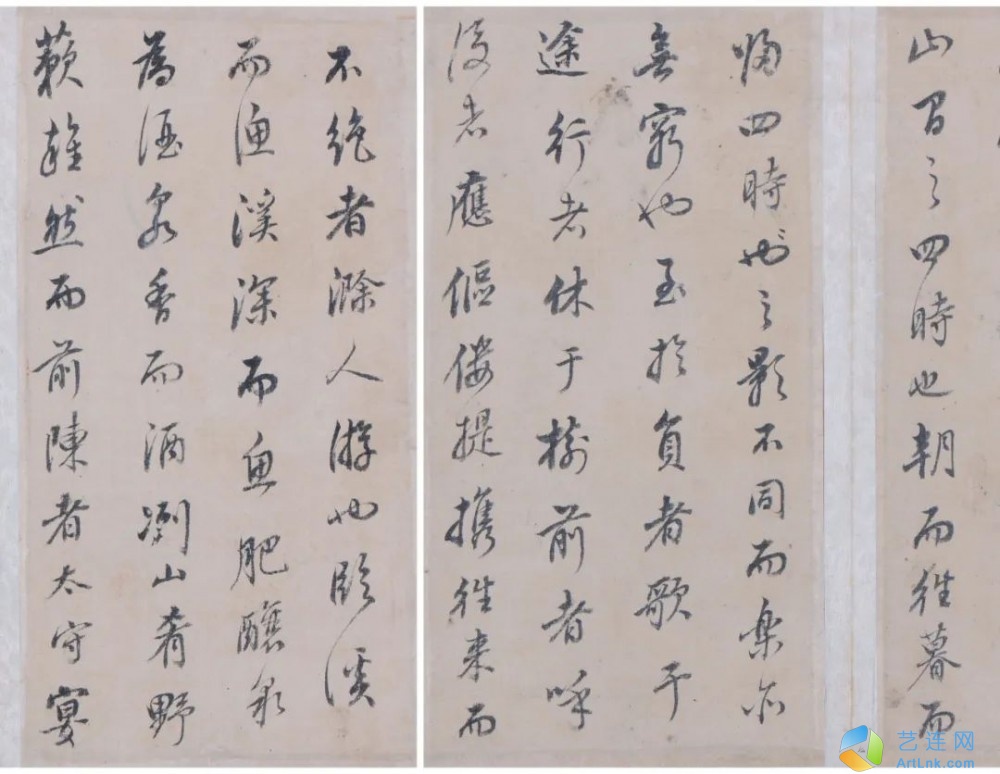 山間之四時也朝而往暮而
歸四時也之影不同而樂亦
無窮也至於負者歌于
途行者休于樹前者呼
後者應傴僂提携往来而
不絶者滁人游也臨溪
而漁溪深而魚肥釀泉
為酒泉香而酒冽山肴野
蔌雜然而前陳者太守宴
艺连网
ArtLnk.com